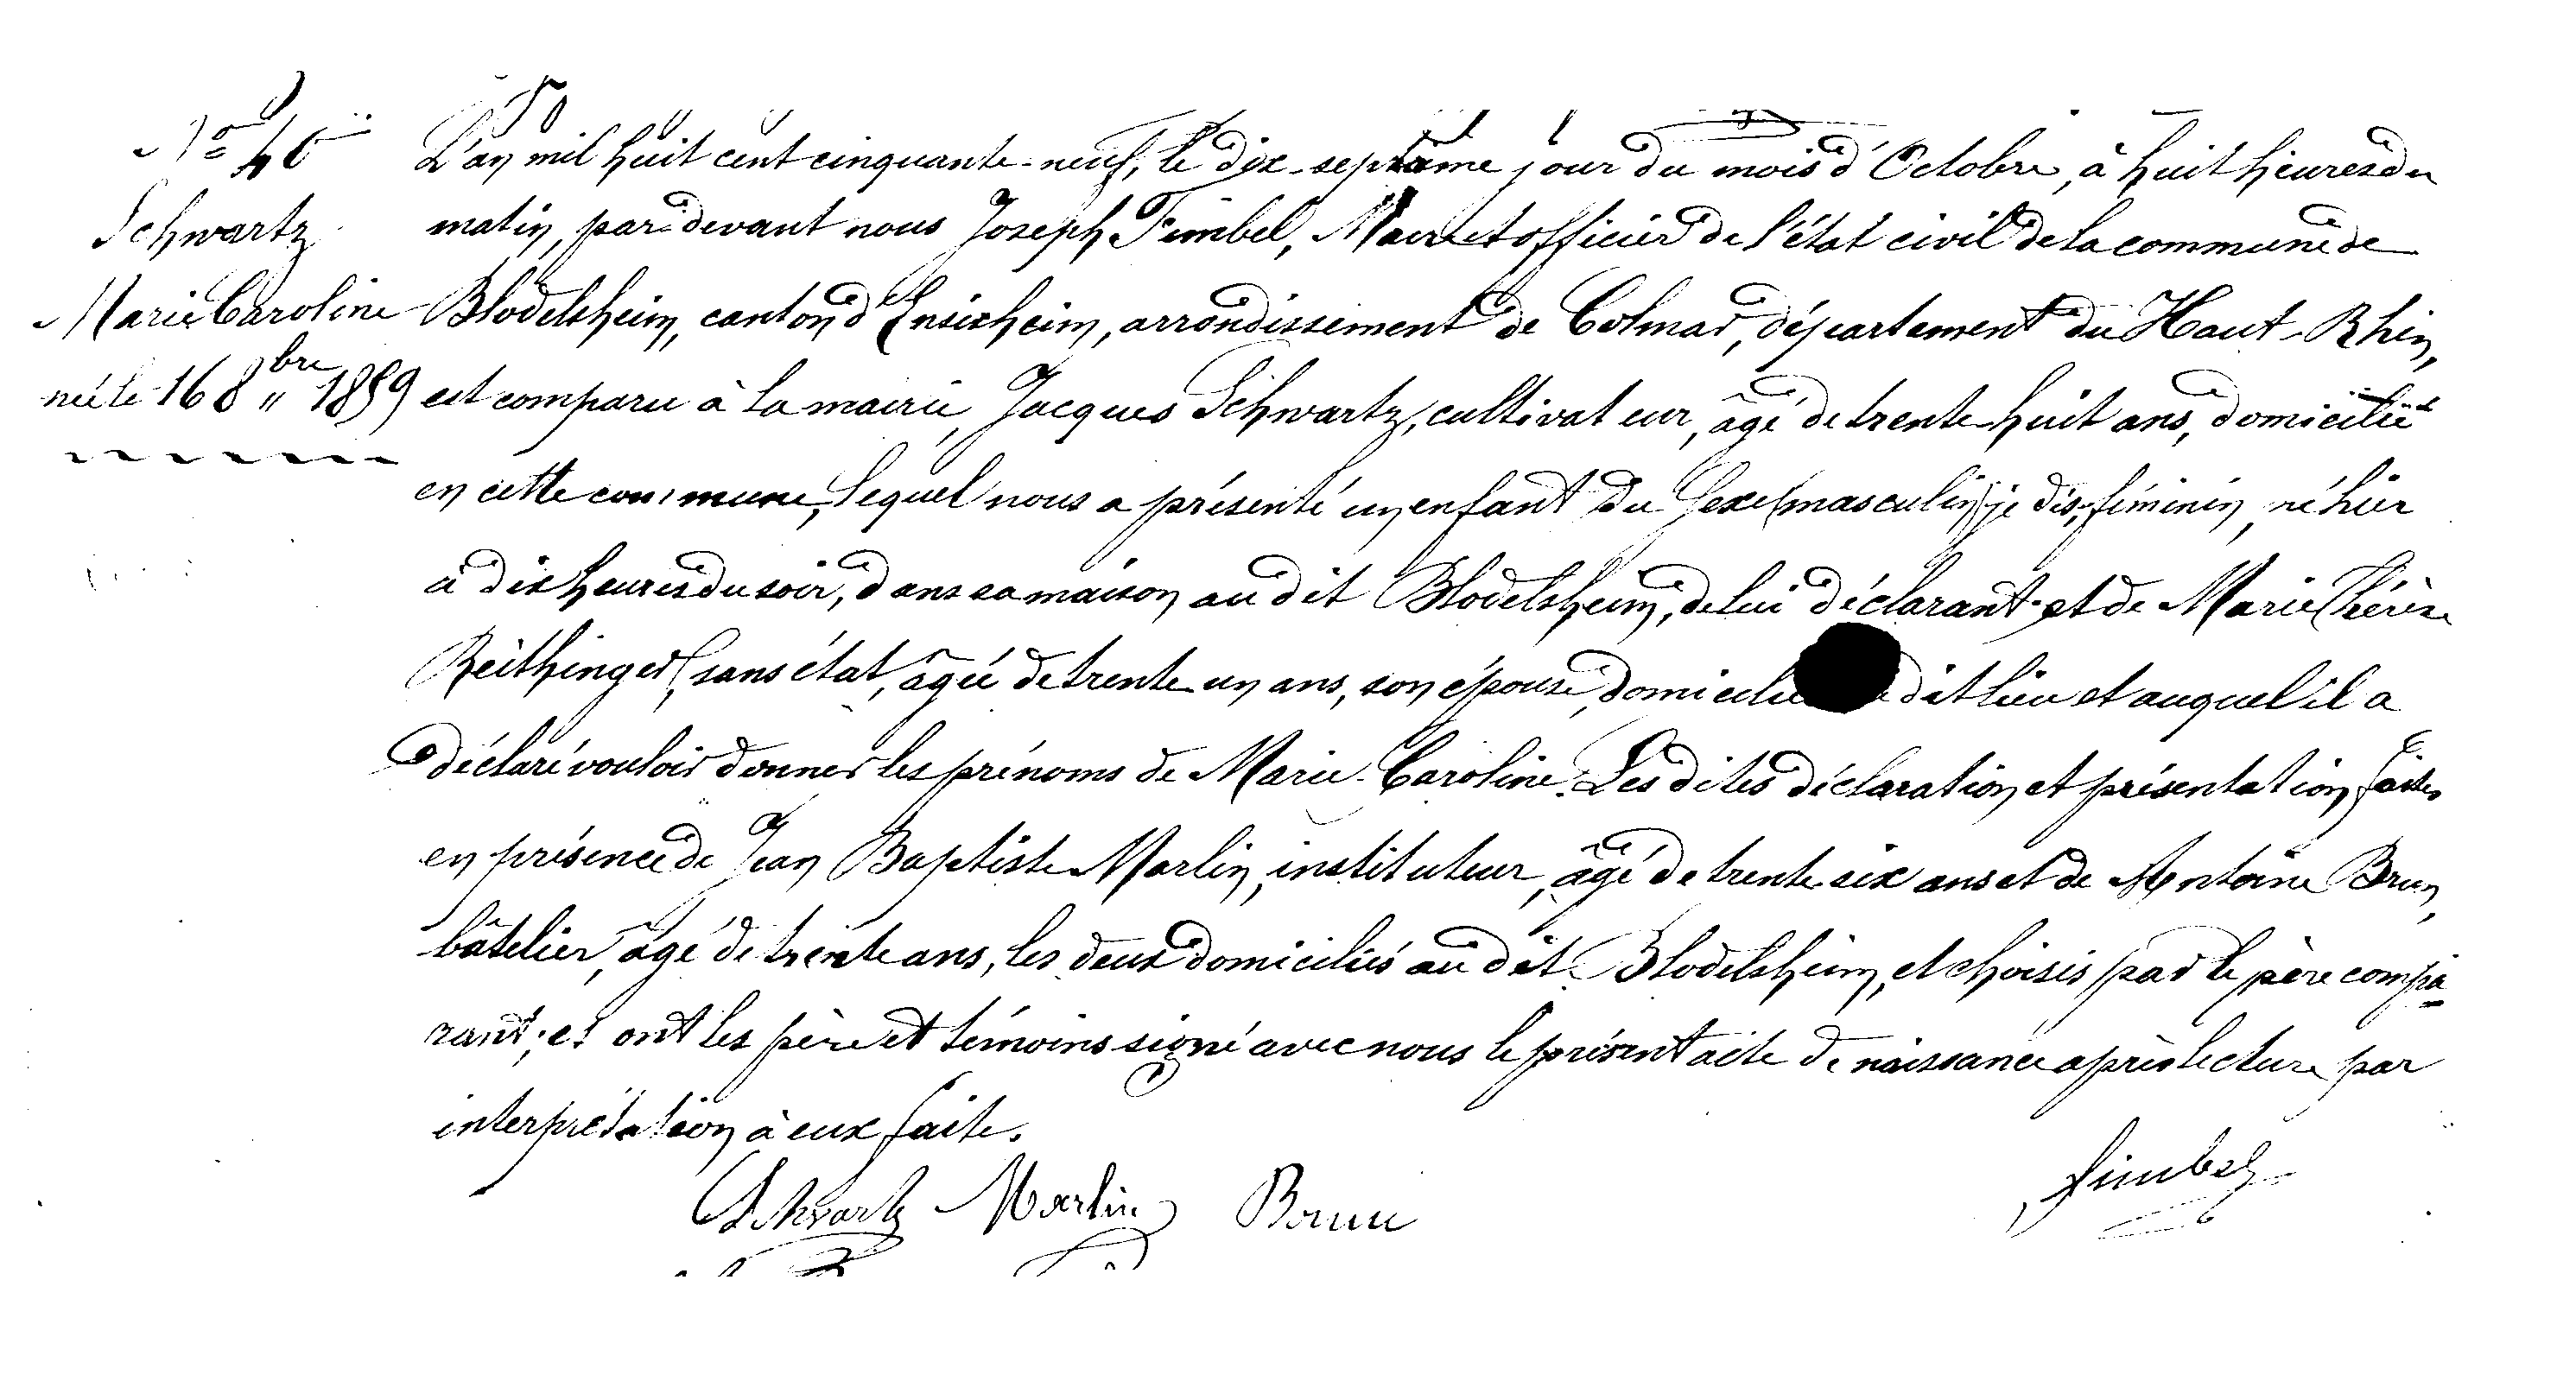 No 46
Schwartz
Marie Caroline
née le 16 8bre 1859
L'an mil huit cent cinquante-neuf, le dix-septième jour du mois d'Octobre, à huit heures du
matin, par devant nous Joseph Fimbel, Maire et officier de l'état civil de la commune de
Blodelsheim, canton d'Ensisheim, arrondissement de Colmar, département du Haut-Rhin,
est comparu à la mairie, Jacques Schwartz, cultivateur, âgé de trente-huit ans, domicilié
en cette commune, lequel nous a présenté un enfant du sexe (masculin) je dis, féminin, né hier
à dix heures du soir, dans sa maison au dit Blodelsheim, de lui déclarant et de Marie Thérèse
Reithinger, sans état, âgée de trente un ans, son épouse, domiciliée dit lieu et auquel il a
déclaré vouloir donner les prénoms de Marie-Caroline. Les dites déclaration et présentation faites
en présence de Jean Baptiste Marlin, instituteur, âgé de trente-six ans et de Antoine Brun,
bâtelier, âgé de trente ans, les deux domiciliés au dit Blodelsheim, et choisis par le père compa
rant; et ont les père et témoins signé avec nous le présent acte de naissance après lecture par
interprétation à eux faite.
Schwartz Marlin Brun Fimbel